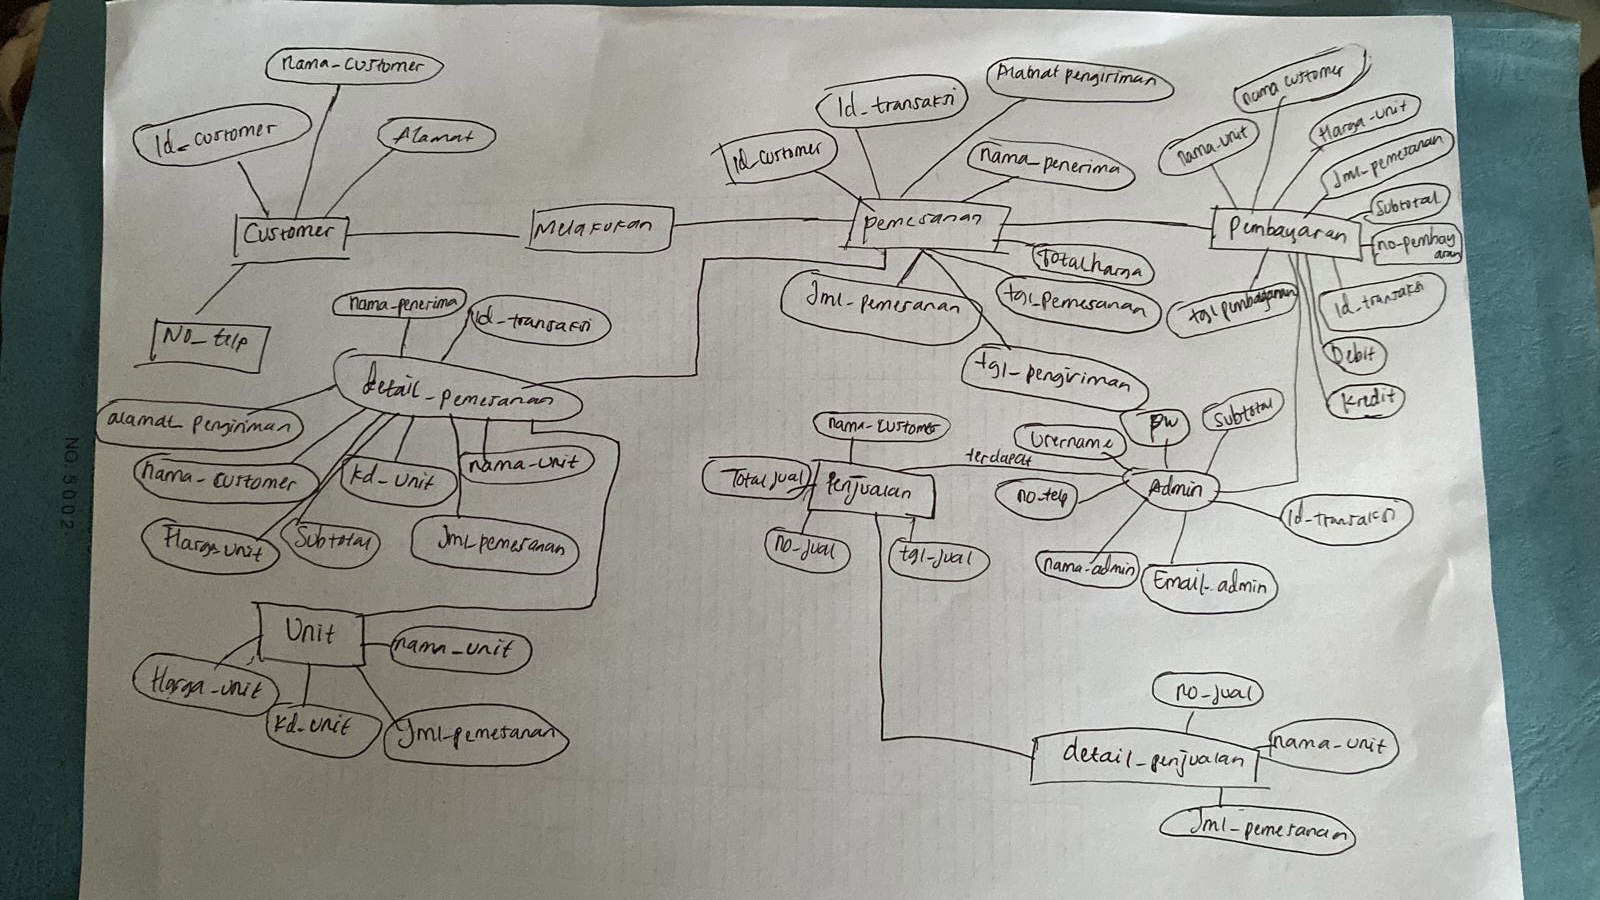 nama_customer
Id_customer
Alamat
Customer
No_telp
Melakukan
Id_transaksi
Alamat pengiriman
Id_customer
nama_penerima
Pemesanan
Total harga
Jml_pemesanan
tgl_pemesanan
tgl_pengiriman
nama customer
nama_unit
Harga_unit
Jml_pemesanan
Subtotal
Pembayaran
no_pembay
aran
tgl pembayaran
Id_transaksi
Debit
Kredit
nama_penerima
Id_transaksi
detail_pemesanan
alamat_pengiriman
nama_customer
kd_unit
nama_unit
Harga unit
Subtotal
Jml_pemesanan
Unit
nama_unit
Harga_unit
kd_unit
Jml_pemesanan
nama_customer
Total jual
Penjualan
terdapat
no_jual
tgl_jual
Username
PW
Subtotal
no_telp
Admin
Id_transaksi
nama_admin
Email_admin
no_jual
detail_penjualan
nama_unit
Jml_pemesanan
NO.5002